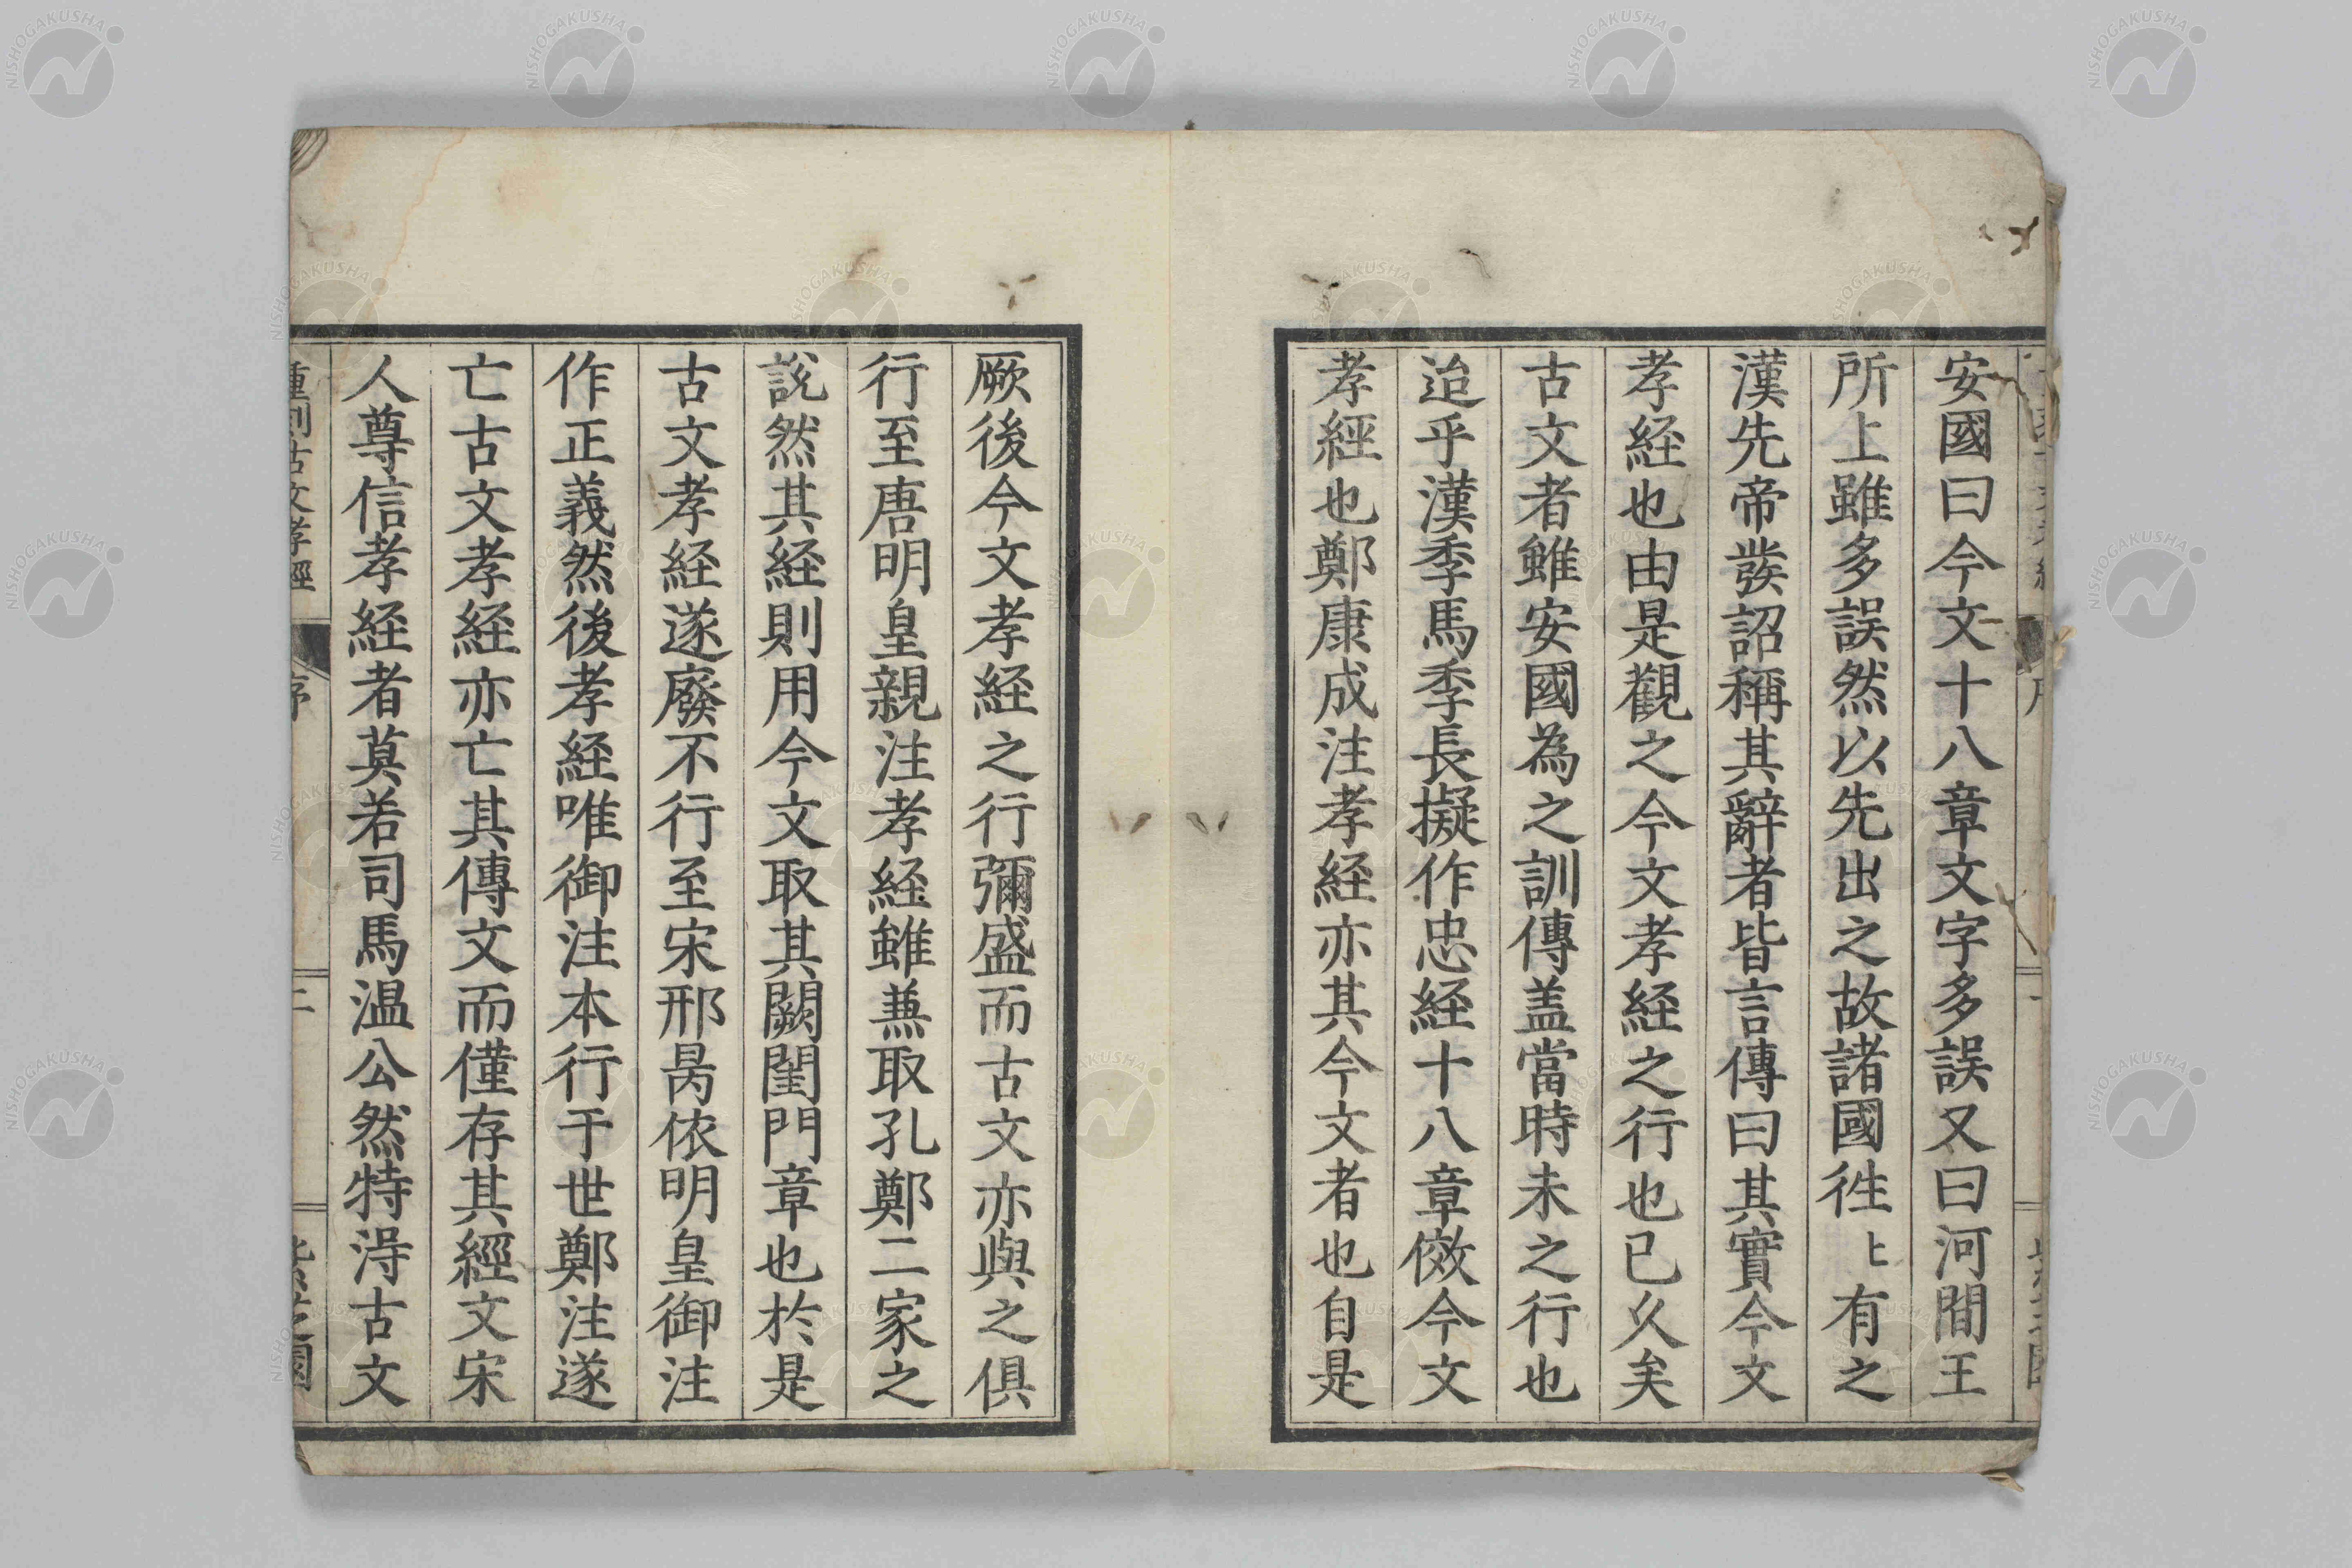 安國曰今文十八章文字多誤又曰河間王
所上雖多誤然以先出之故諸國徃〻有之
漢先帝發詔稱其辭者皆言傳曰其實今文
孝経也由是觀之今文孝経之行也已久矣
古文者雖安國為之訓傳盖當時未之行也
迨乎漢季馬季長擬作忠経十八章傚今文
孝經也鄭康成注孝経亦其今文者也自是
厥後今文孝経之行彌盛而古文亦與之俱
行至唐明皇親注孝経雖兼取孔鄭二家之
說然其経則用今文取其闕閨門章也於是
古文孝経遂廢不行至宋邢昺依明皇御注
作正義然後孝経唯御注本行于世鄭注遂
亡古文孝経亦亡其傳文而僅存其經文宋
人尊信孝経者莫若司馬温公然特淂古文
重刻古文孝經
序
二
NISHOGAKUSHA